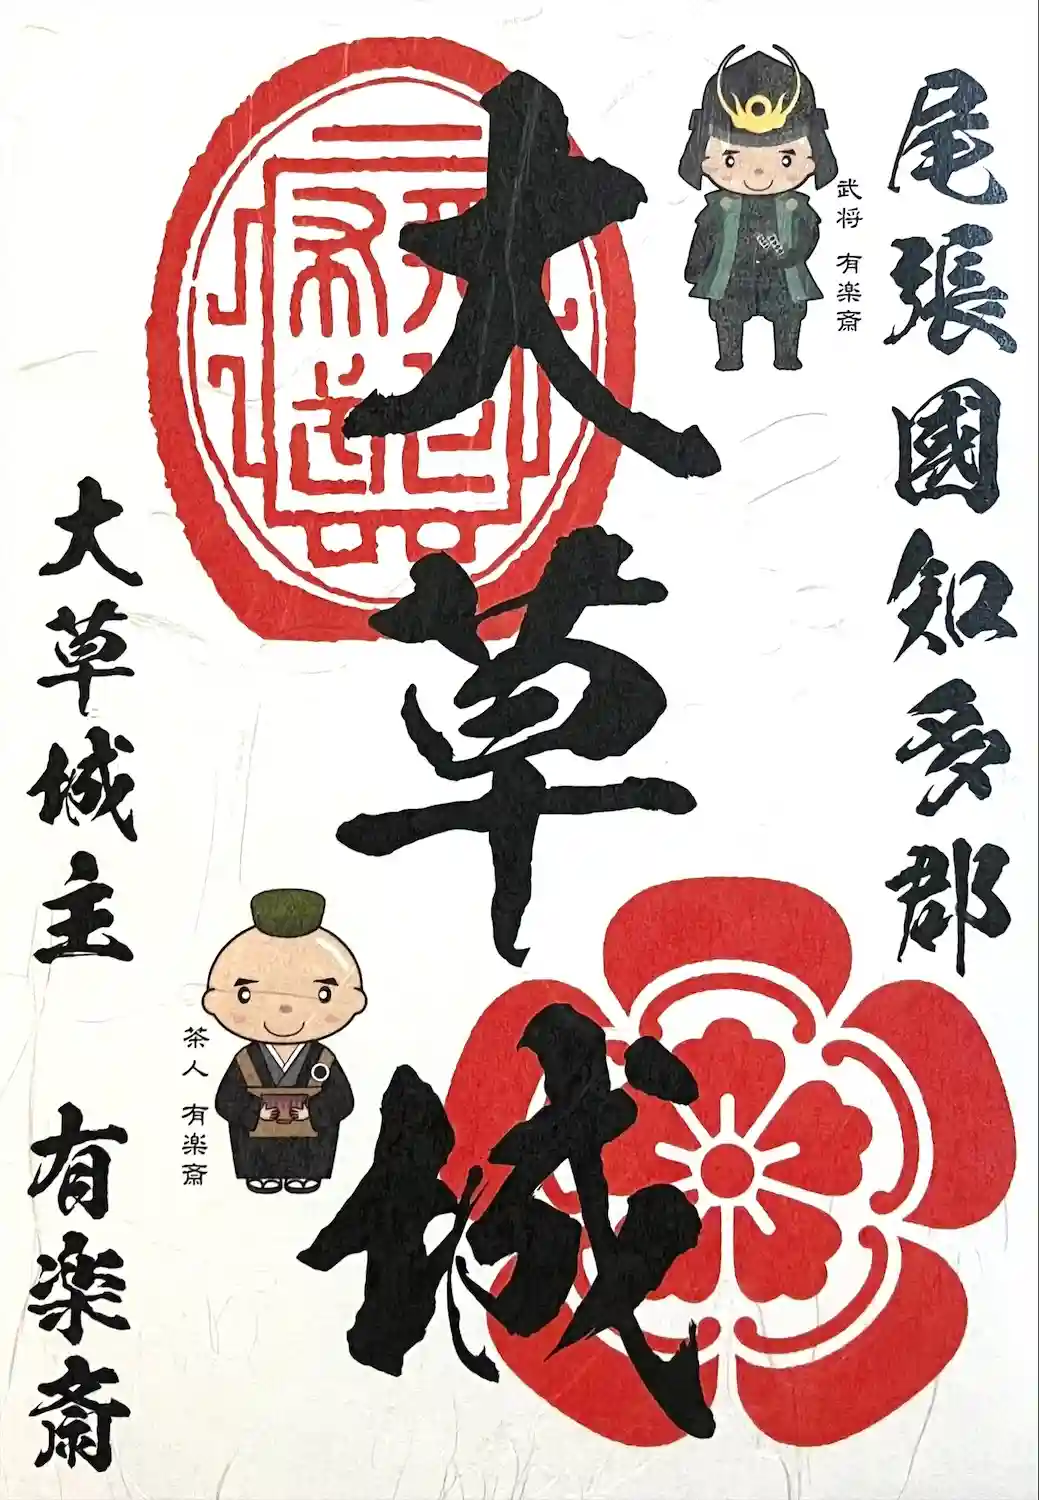 尾張國知多郡
武将 有楽斎
大草城
茶人 有楽斎
大草城主 有楽斎